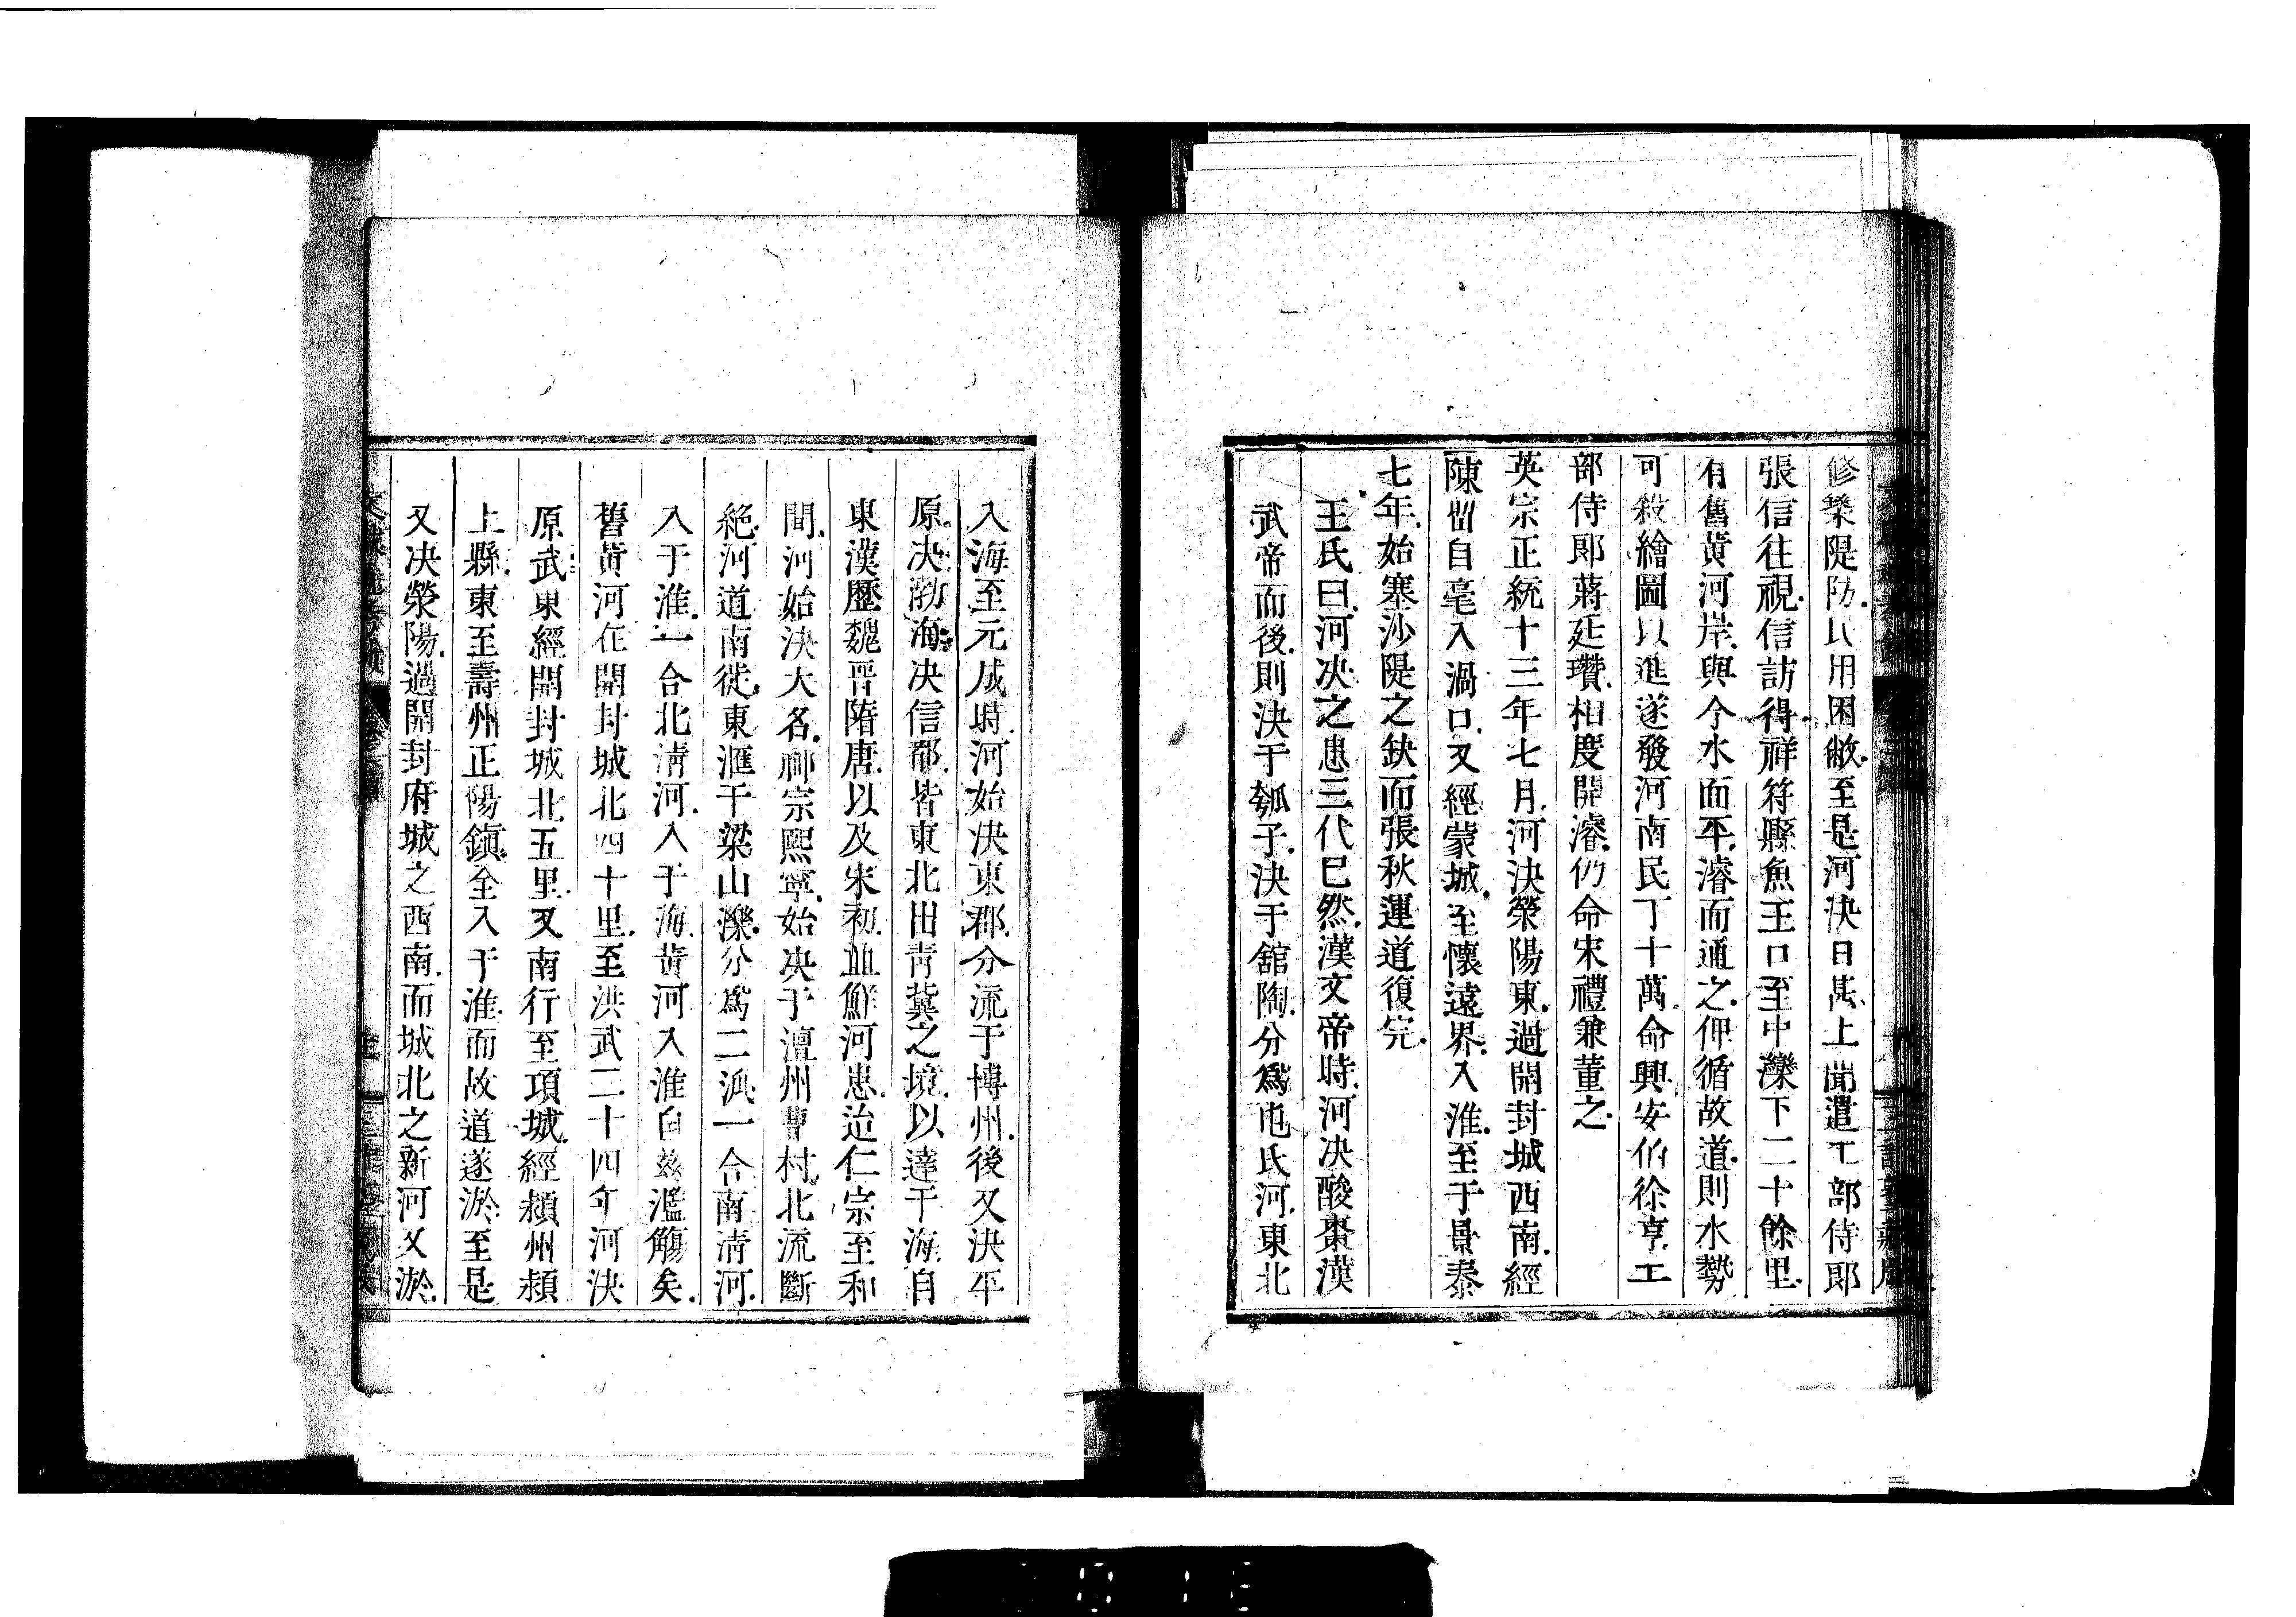 修築隄防民用困敝至是河決日甚上聞遣工部侍郎
張信往視信訪得祥符縣魚王口至中灤下二十餘里
有舊黃河岸與今水面平濬而通之俾循故道則水勢
可殺繪圖以進遂發河南民丁十萬命興安伯徐亨工
部侍郎蔣廷瓚相度開濬仍命宋禮兼董之
英宗正統十三年七月河決滎陽東過開封城西南經
陳畱自亳入渦口又經蒙城至懷遠界入淮至于景泰
七年始塞沙隄之缺而張秋運道復完
王氏曰河决之患三代已然漢文帝時河决酸棗漢
武帝而後則決于瓠子決于舘陶分爲屯氏河東北
入海至元成時河始決東郡分流于博州後又決平
原決渤海決信都皆東北由靑冀之境以達于海自
東漢歷魏晉隋唐以及宋初並鮮河患迨仁宗至和
間河始決大名神宗熙寧始決于澶州曹村北流斷
絕河道南徙東滙于梁山濼分爲二派一合南淸河
入于淮一合北淸河入于海黃河入淮自玆濫觴矣
舊黃河在開封城北四十里至洪武二十四年河決
原武東經開封城北五里又南行至項城經頴州頴
上縣東至壽州正陽鎭全入于淮而故道遂淤至是
又決滎陽過開封府城之西南而城北之新河又淤